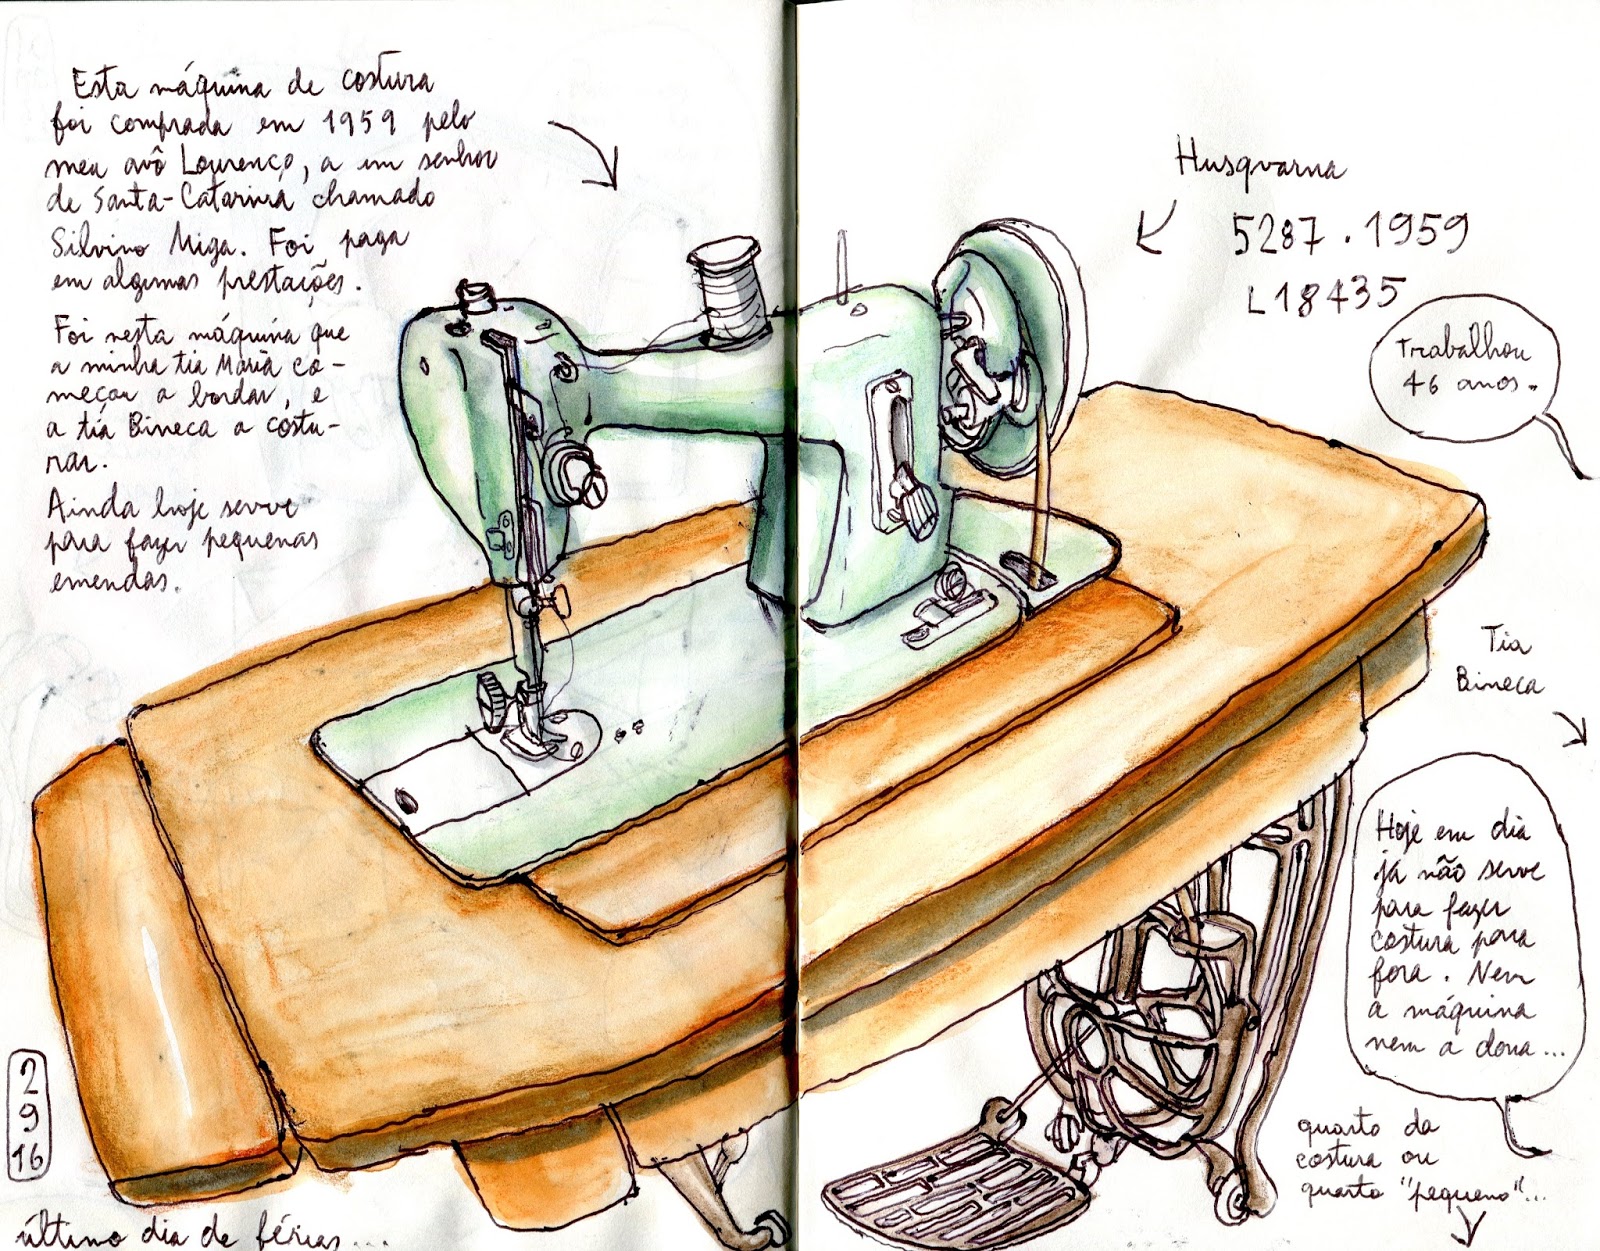 Esta máquina de costura
foi comprada em 1959 pelo
meu avô Lourenço, a um senhor
de Santa-Catarina chamado
Silvino Miga. Foi paga
em algumas prestações.
Foi nesta máquina que
a minha tia Maria co-
meçou a bordar, e
a tia Bineca a costu-
rar.
Ainda hoje serve
para fazer pequenas
emendas.
Husqvarna
5287.1959
L18435
Trabalhou
46 anos.
Tia
Bineca
Hoje em dia
já não serve
para fazer
costura para
fora. Nem
a máquina
nem a dona...
quarto da
costura ou
quarto "pequeno"...
2
9
16
último dia de férias...